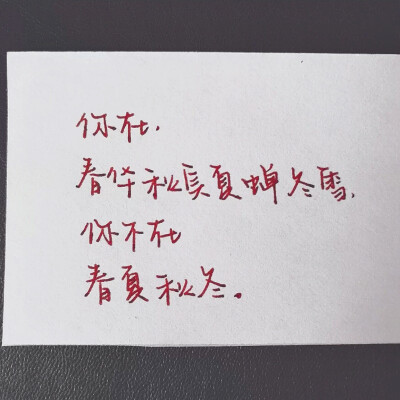 你在,
春华秋实夏蝉冬雪,
你不在
春夏秋冬。